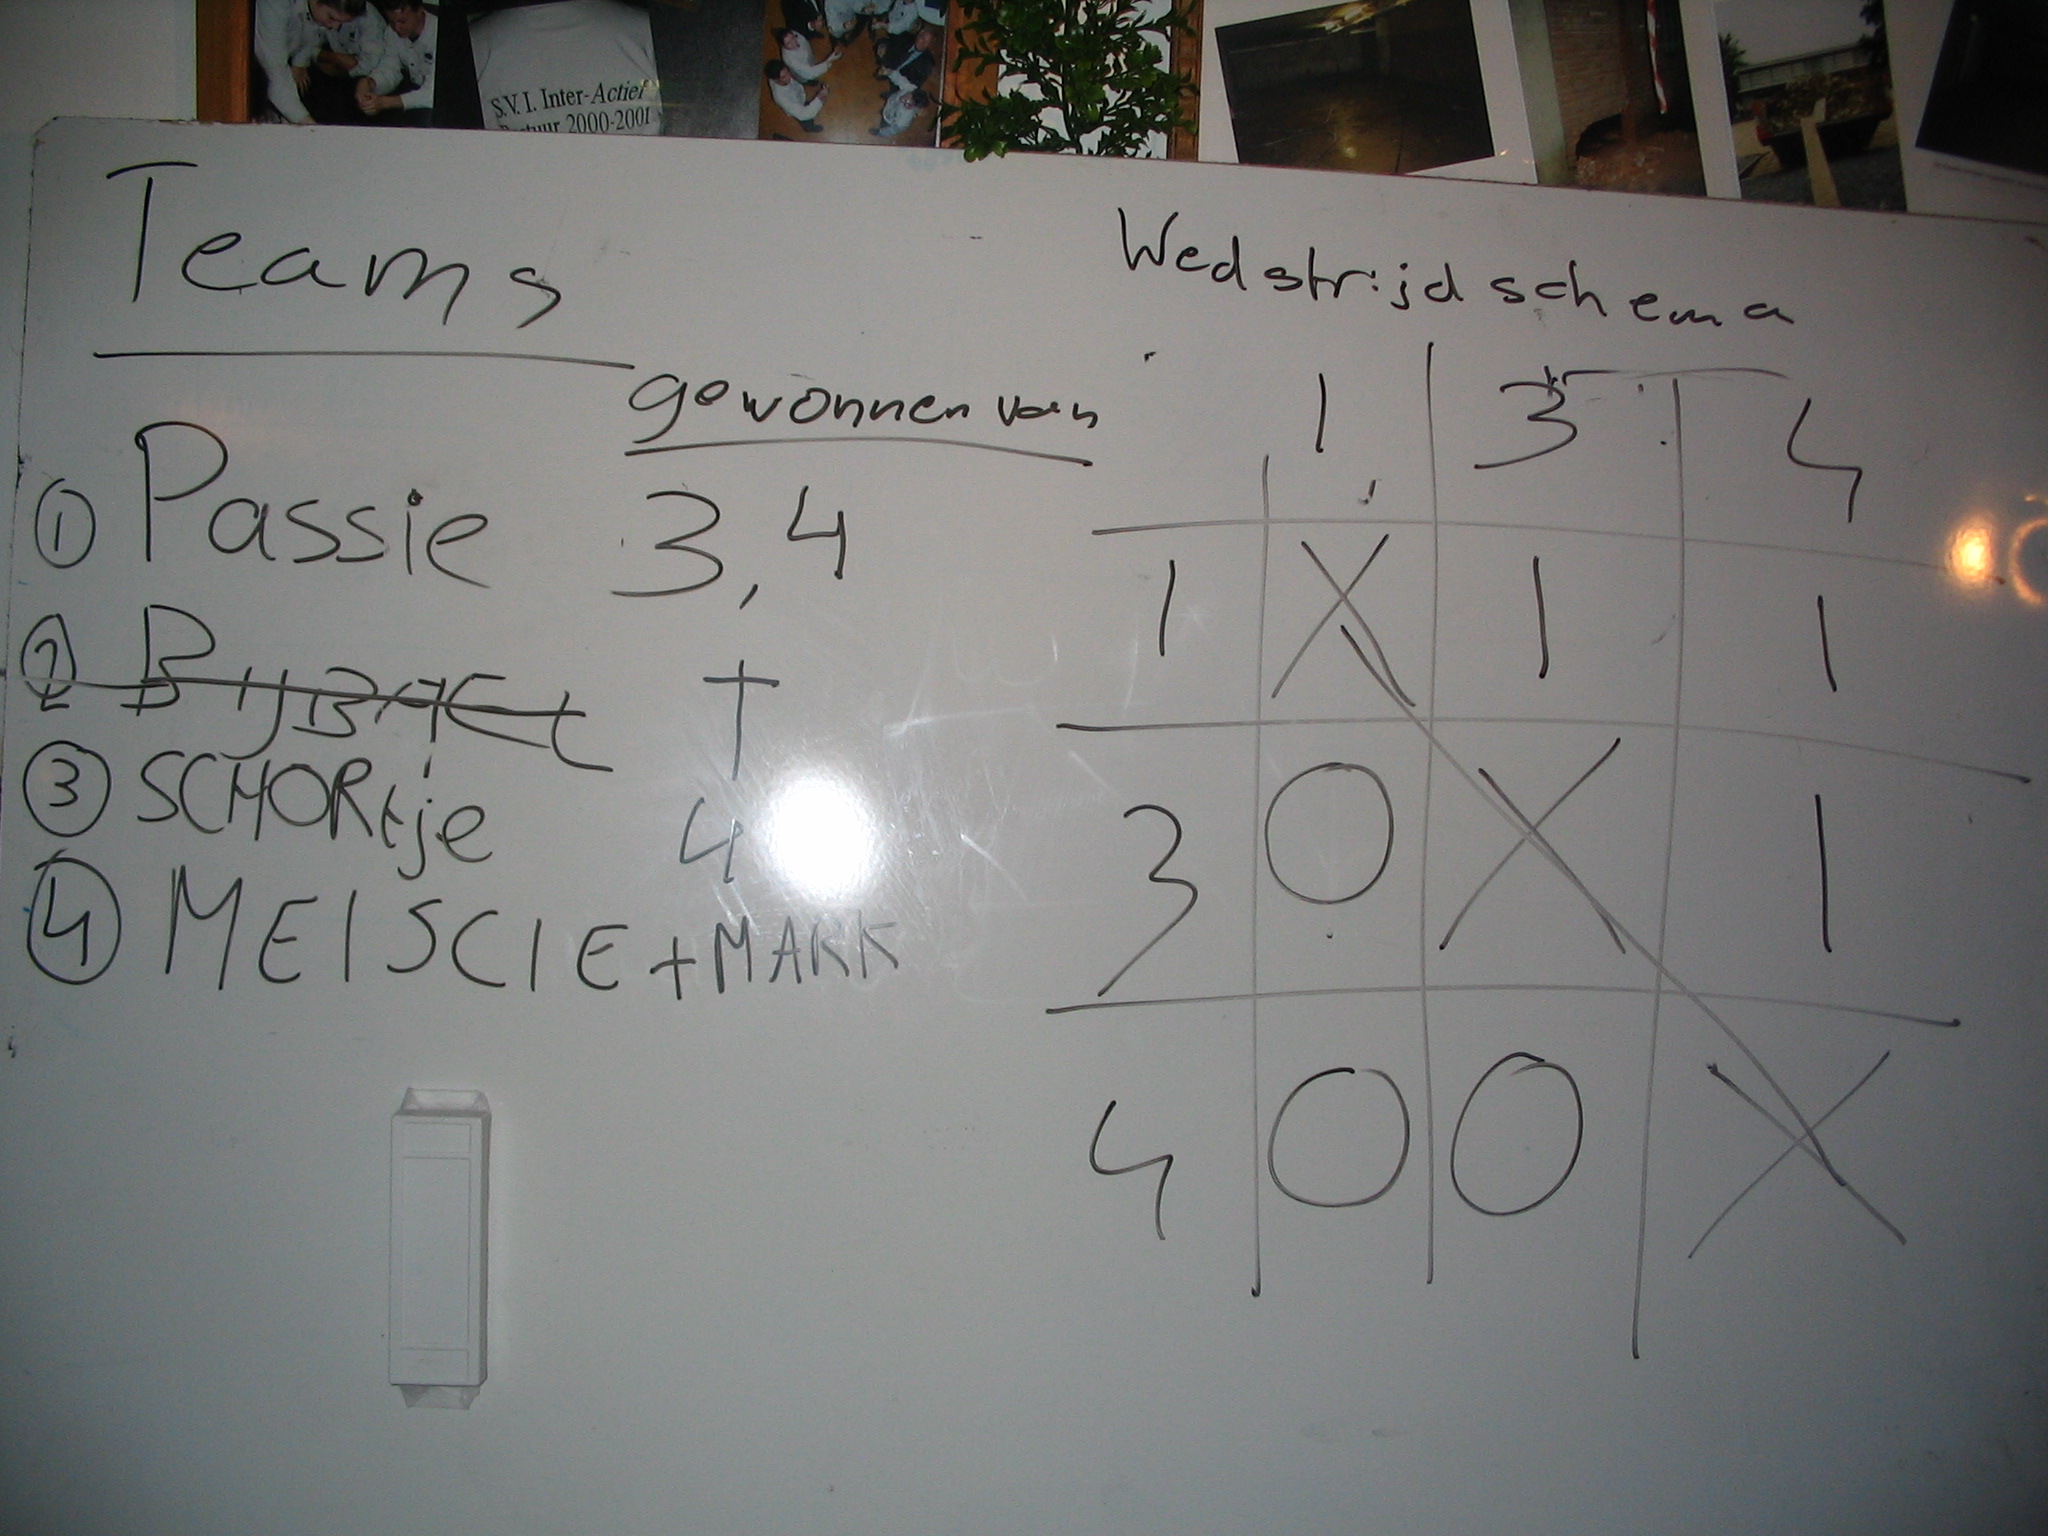 S.V.I. Inter-Actief
Bestuur 2000-2001
Teams
gewonnen van
① Passie 3,4
② BIJBAEL †
③ SCHORtje 4
④ MEISCIE + MARK
Wedstrijdschema
1 3 4
1 X 1 1
3 0 X 1
4 0 0 X